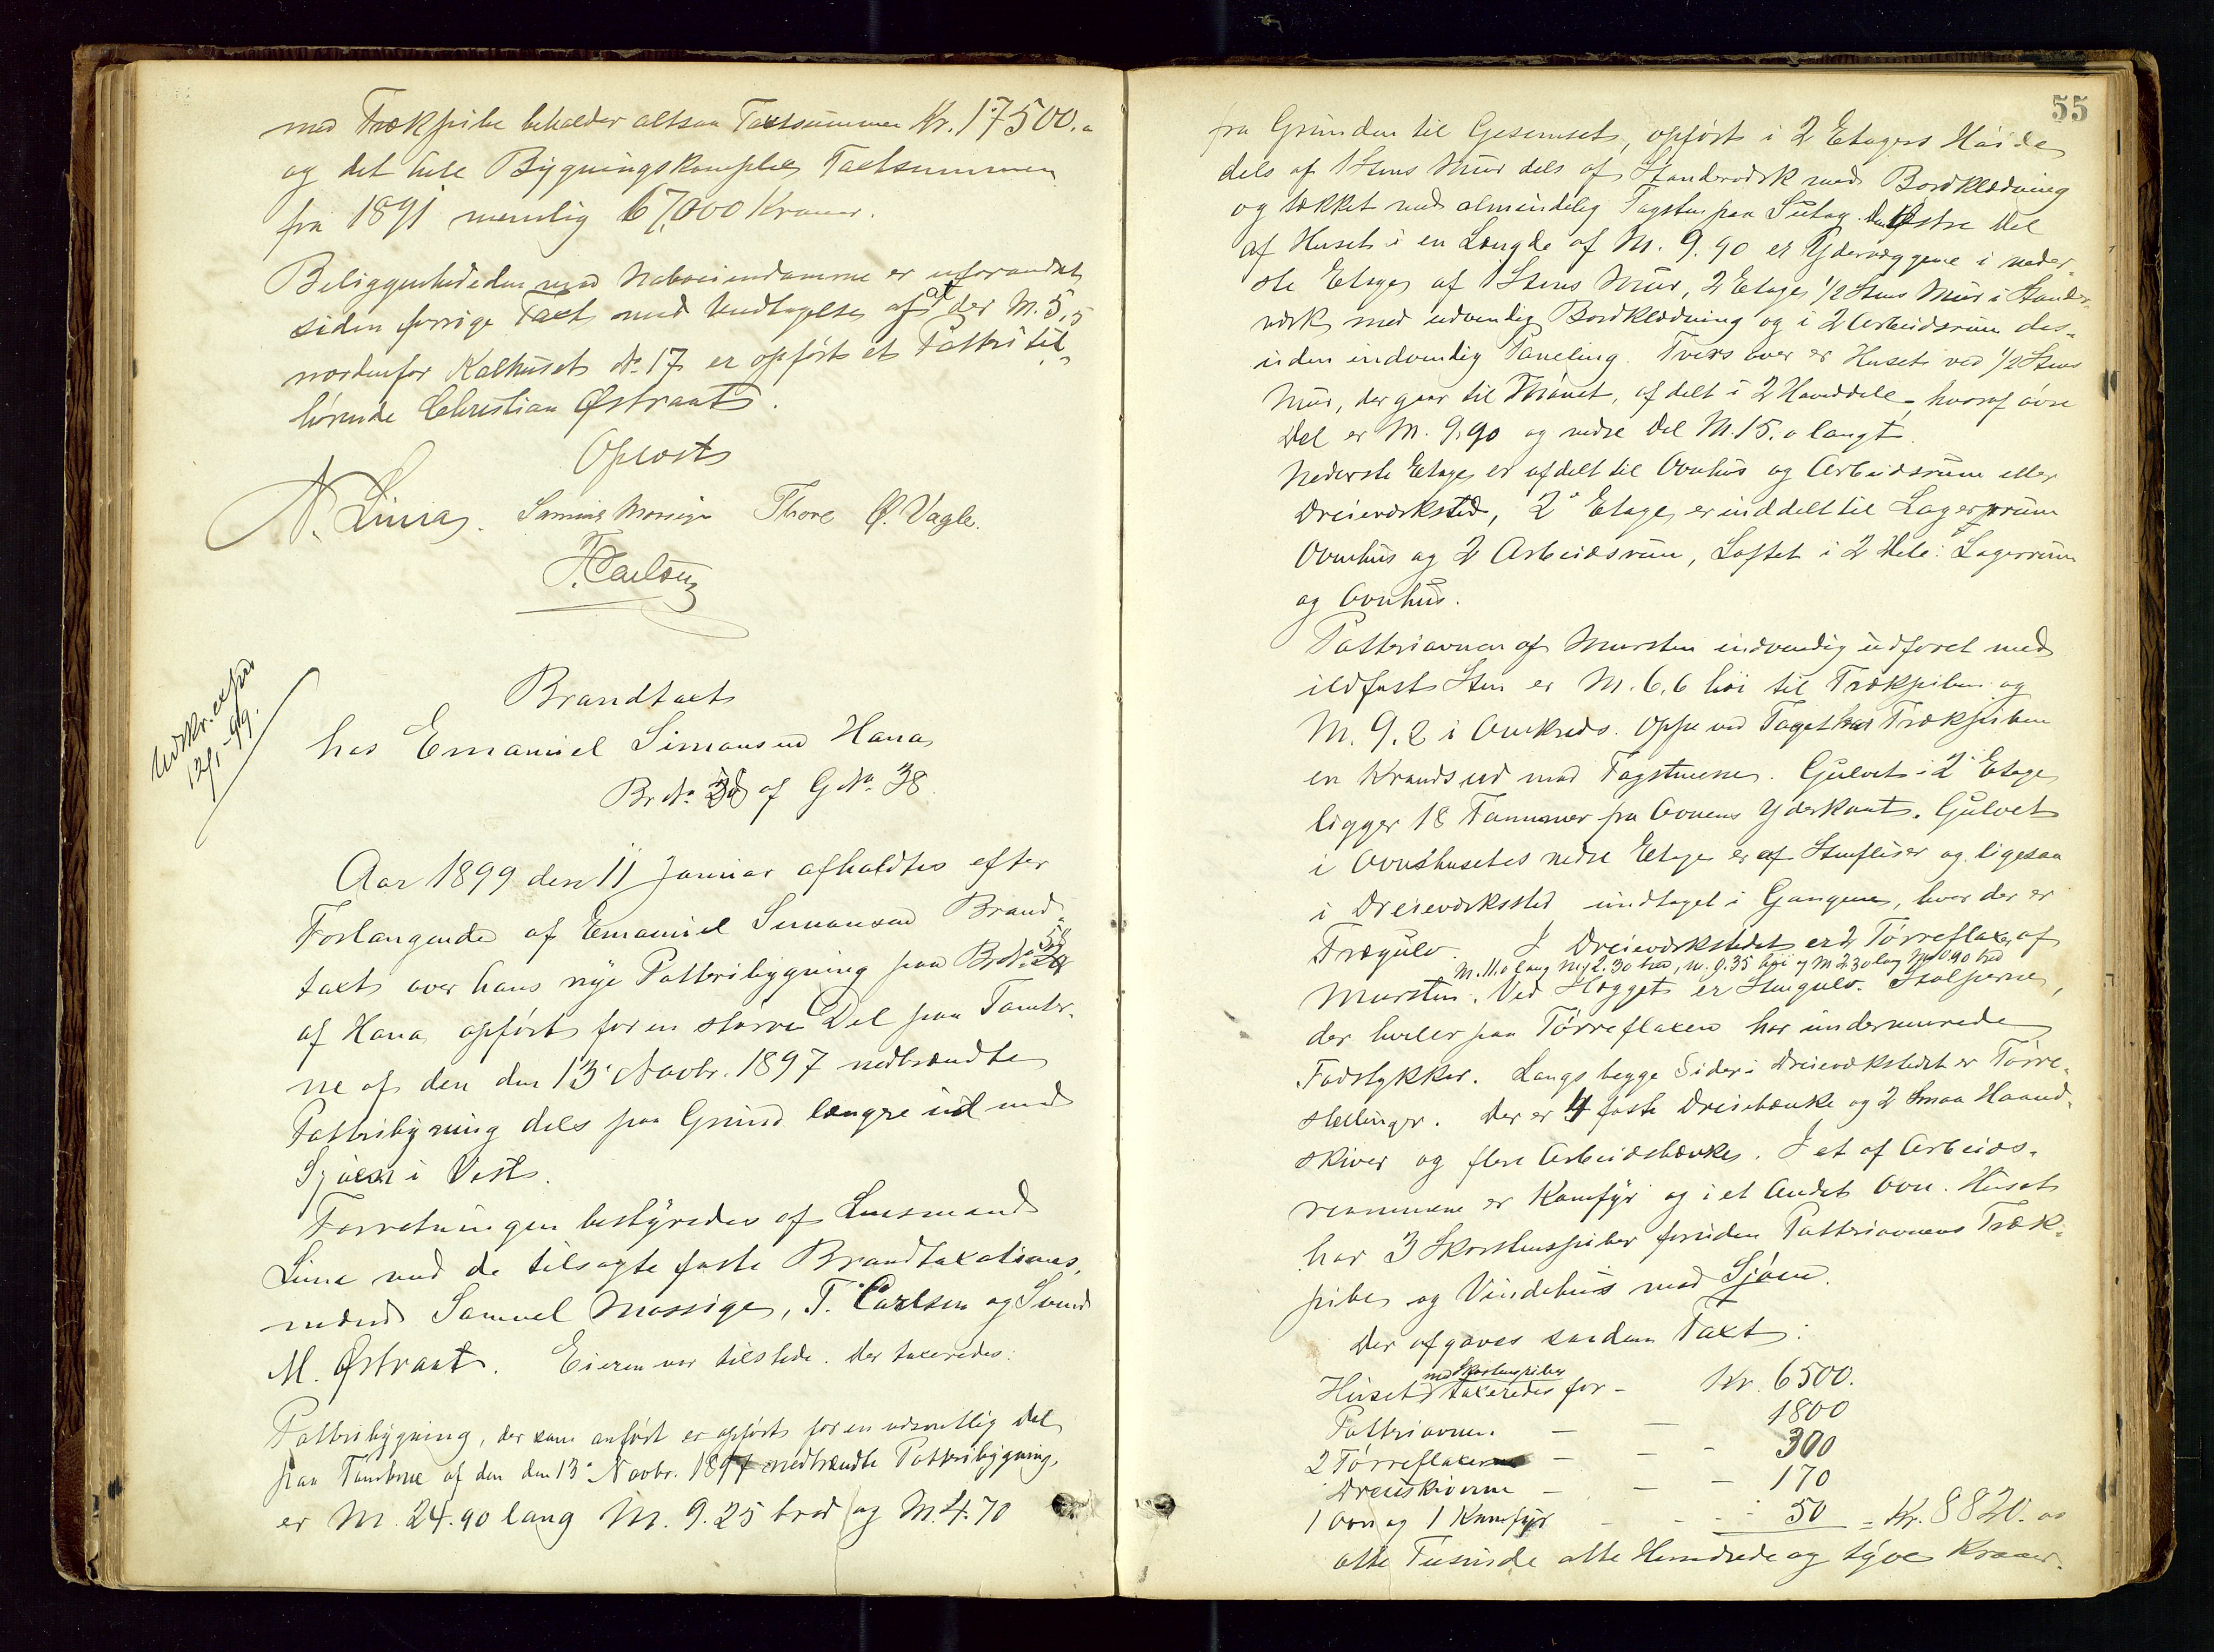 med Trækpibe beholder altsaa Taxtsummen Kr. 17500.
og det hele Bygningskomplex Taxtsummen
fra 1891 nemlig 67,000 Kroner.
Beliggenheden mod Naboeiendomme er uforandret
siden forrige Taxt med Undtagelse af at der M. 5,5
nordenfor Kalhuset No 17 er opført et Potteri til-
hørende Christian Østraat.
Oplæst
N. Lima. Samuel Mossige Thore Ø. Vagle.
T. Carlsen
Udskr. exped
12/1-99.
Brandtaxt
hos Emanuel Simonsen Hana
Br No 38 af G No 38.
Aar 1899 den 11 Januar afholdtes efter
Forlangende af Emanuel Simonsen Brand-
taxt over hans nye Potteribygning paa Br No 58
af Hana opført for en større Del paa Tomter-
ne af den den 13' Novbr. 1897 nedbrændte
Potteribygning dels paa Grund længre ud mod
Sjøen i Vest.
Forretningen bestyredes af Lensmand
Lima med de tilsagte faste Brandtaxations-
mænd Samuel Mossige, T. Carlsen og Svend
M. Østraat. Eieren var tilstede. Der taxeredes:
Potteribygning, der som anført er opført for en væsentlig Del
paa Tomterne af den den 13' Novbr. 1897 nedbrændte Potteribygning,
er M. 24.90 lang M. 9.25 bred og M. 4.70
55
fra Grunden til Gesemset, opført i 2 Etagers Høide
dels af 1 Stens Mur dels af Standerværk med Bordklædning
og tækket med almindelig Tagsten paa Sutag. Den Østre Del
af Huset i en Længde af M. 9.90 er Ydervæggene i neder-
ste Etage af 1 Stens Mur, 2 Etage 1/2 Stens Mur i Stander-
værk med udvendig Bordklædning og i 2 Arbeidsrum des-
uden indvendig Paneling. Tvers over er Huset ved 1/2 Stens
Mur, der gaar til Mønet, afdelt i 2 Hoveddele, hvoraf øvre
Del er M. 9.90 og nedre Del M. 15.0 langt.
Nederste Etage er afdelt til Ovnhus og Arbeidsrum eller
Dreieværksted, 2' Etage er inddelt til Lagerrum
Ovnhus og 2 Arbeidsrum, Loftet i 2 Dele: Lagerrum
og Ovnhus.
Potteriovnen af Mursten indvendig udforet med
ildfast Sten er M. 6,6 høi til Trækpiben og
M. 9,2 i Omkreds. Oppe ved Taget har Trækpiben
en Krands ud mod Tagstenene. Gulvet i 2' Etage
ligger 18 Tommer fra Ovnens Yderkant. Gulvet
i Ovnshusets nedre Etage er af Stenfliser og ligesaa
i Dreieværksted undtaget i Gangene, hvor der er
Trægulv. I Dreieværkstedet er 2 Tørreflaxer af
M. 11.0 lang M. 2.30 bred, M. 0.35 høi og M 2.30 lang M 0.90 bred
Mursten. Ved Hogget er Stengulv. Stolperne,
der hviler paa Tørreflaxen har undermurede
Fodstykker. Langs begge Sider i Dreieværkstedet er Tørre-
stellinger. Der er 4 faste Dreiebænke og 2 smaa Haand-
skiver og flere Arbeidsbænke. I et af Arbeids-
rummene er Komfyr og i et Andet Ovn. Huset
har 3 Skorstenspiber foruden Potteriovnens Træk-
pibe og Vindehus mod Sjøen.
Der afgaves saadan Taxt:
med Skorstenspiber
Huset taxeredes for - Kr. 6500.
Potteriovnen - - 1800
2 Tørreflaxer - - - 300
Dreieskiverne - - - 170
1 Ovn og 1 Komfyr - - - 50 = Kr. 8820. 00
otte Tusinde otte Hundrede og tyve Kroner.